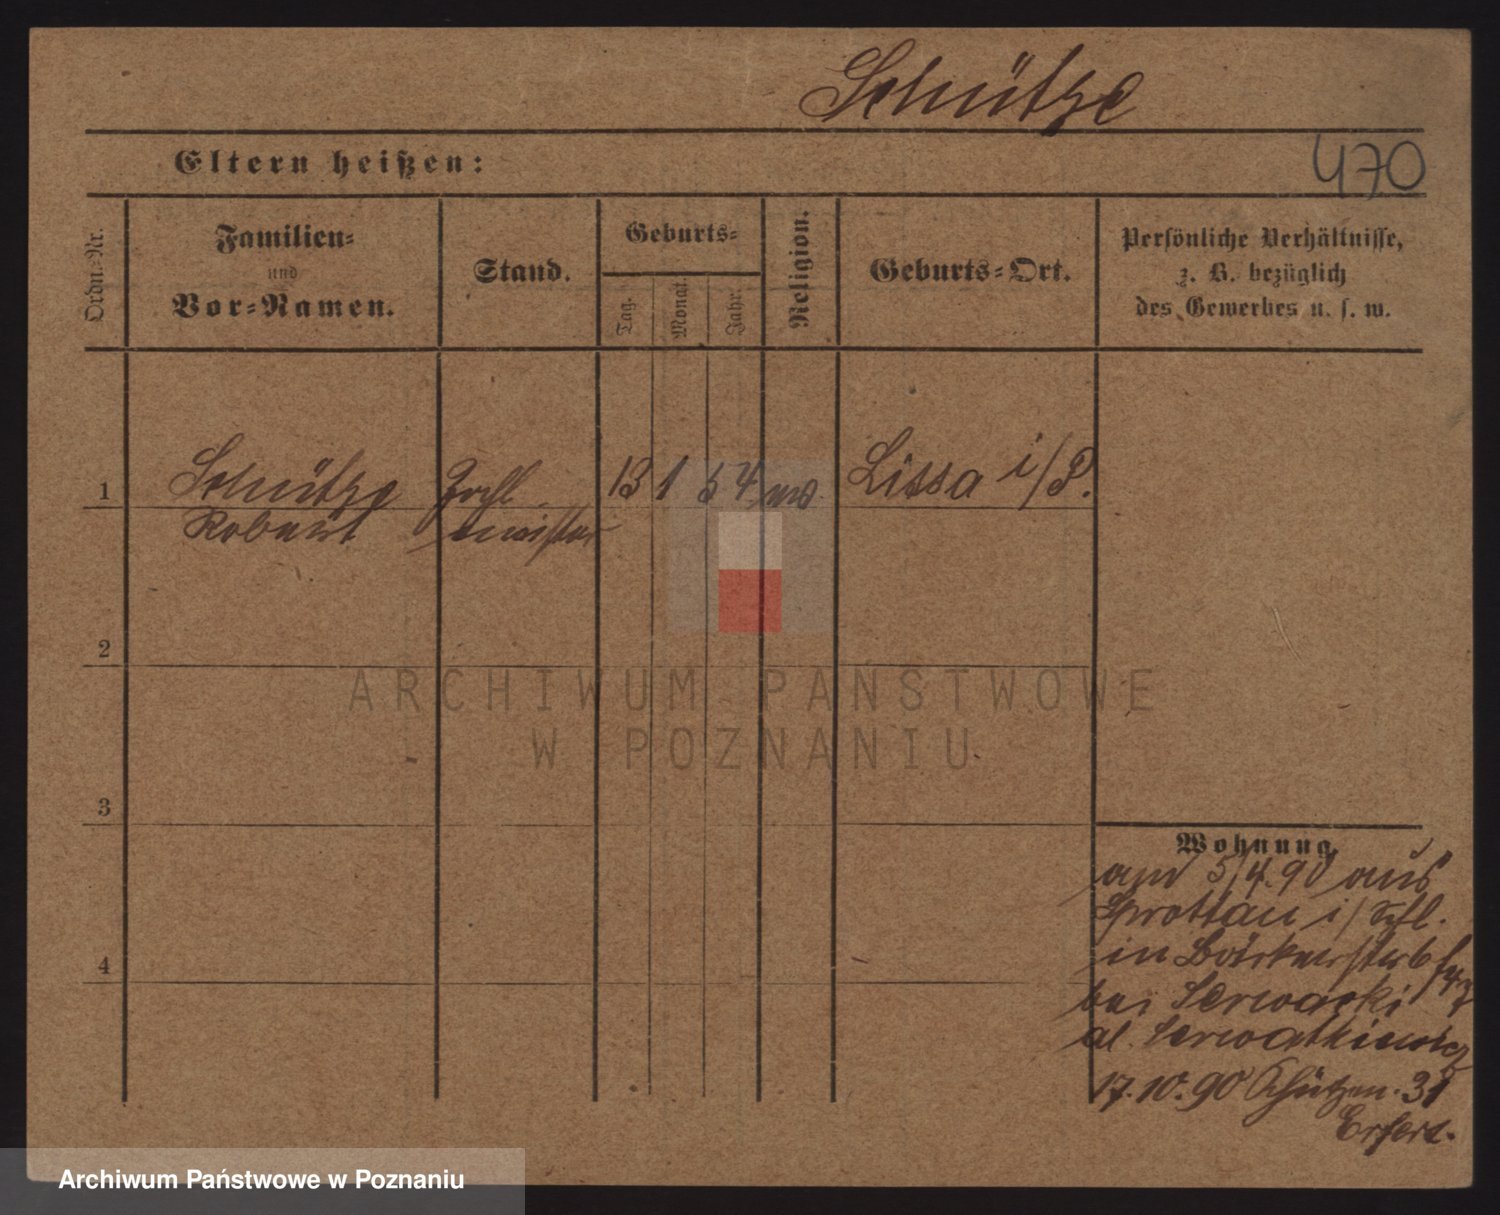 Schütze
Eltern heißen:
470
Ordn.-Nr.
Familien-
und
Vor-Namen.
Stand.
Geburts-
Tag.
Monat.
Jahr.
Religion.
Geburts-Ort.
Persönliche Verhältnisse,
z. B. bezüglich
des Gewerbes u. s. w.
1
Schütze
Robert
13 1 54
Lissa i/P.
2
3
4
Wohnung
5/4.90 aus
Sprottau i/Schl.
in
bei
al.
17.10.90 Schützen. 31
ARCHIWUM PAŃSTWOWE
W POZNANIU
Archiwum Państwowe w Poznaniu